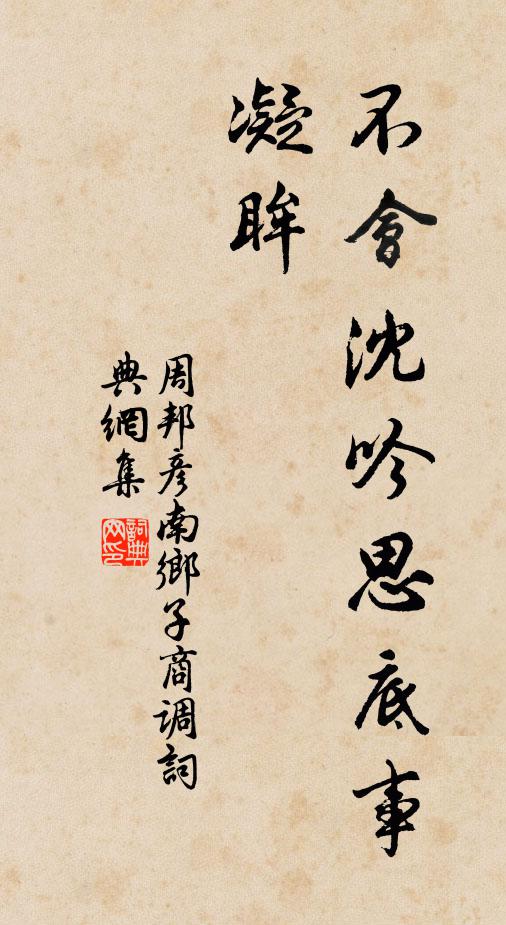 不會沈吟思底事
凝眸
周邦彦南鄉子商调詞
典網集
詞典网印